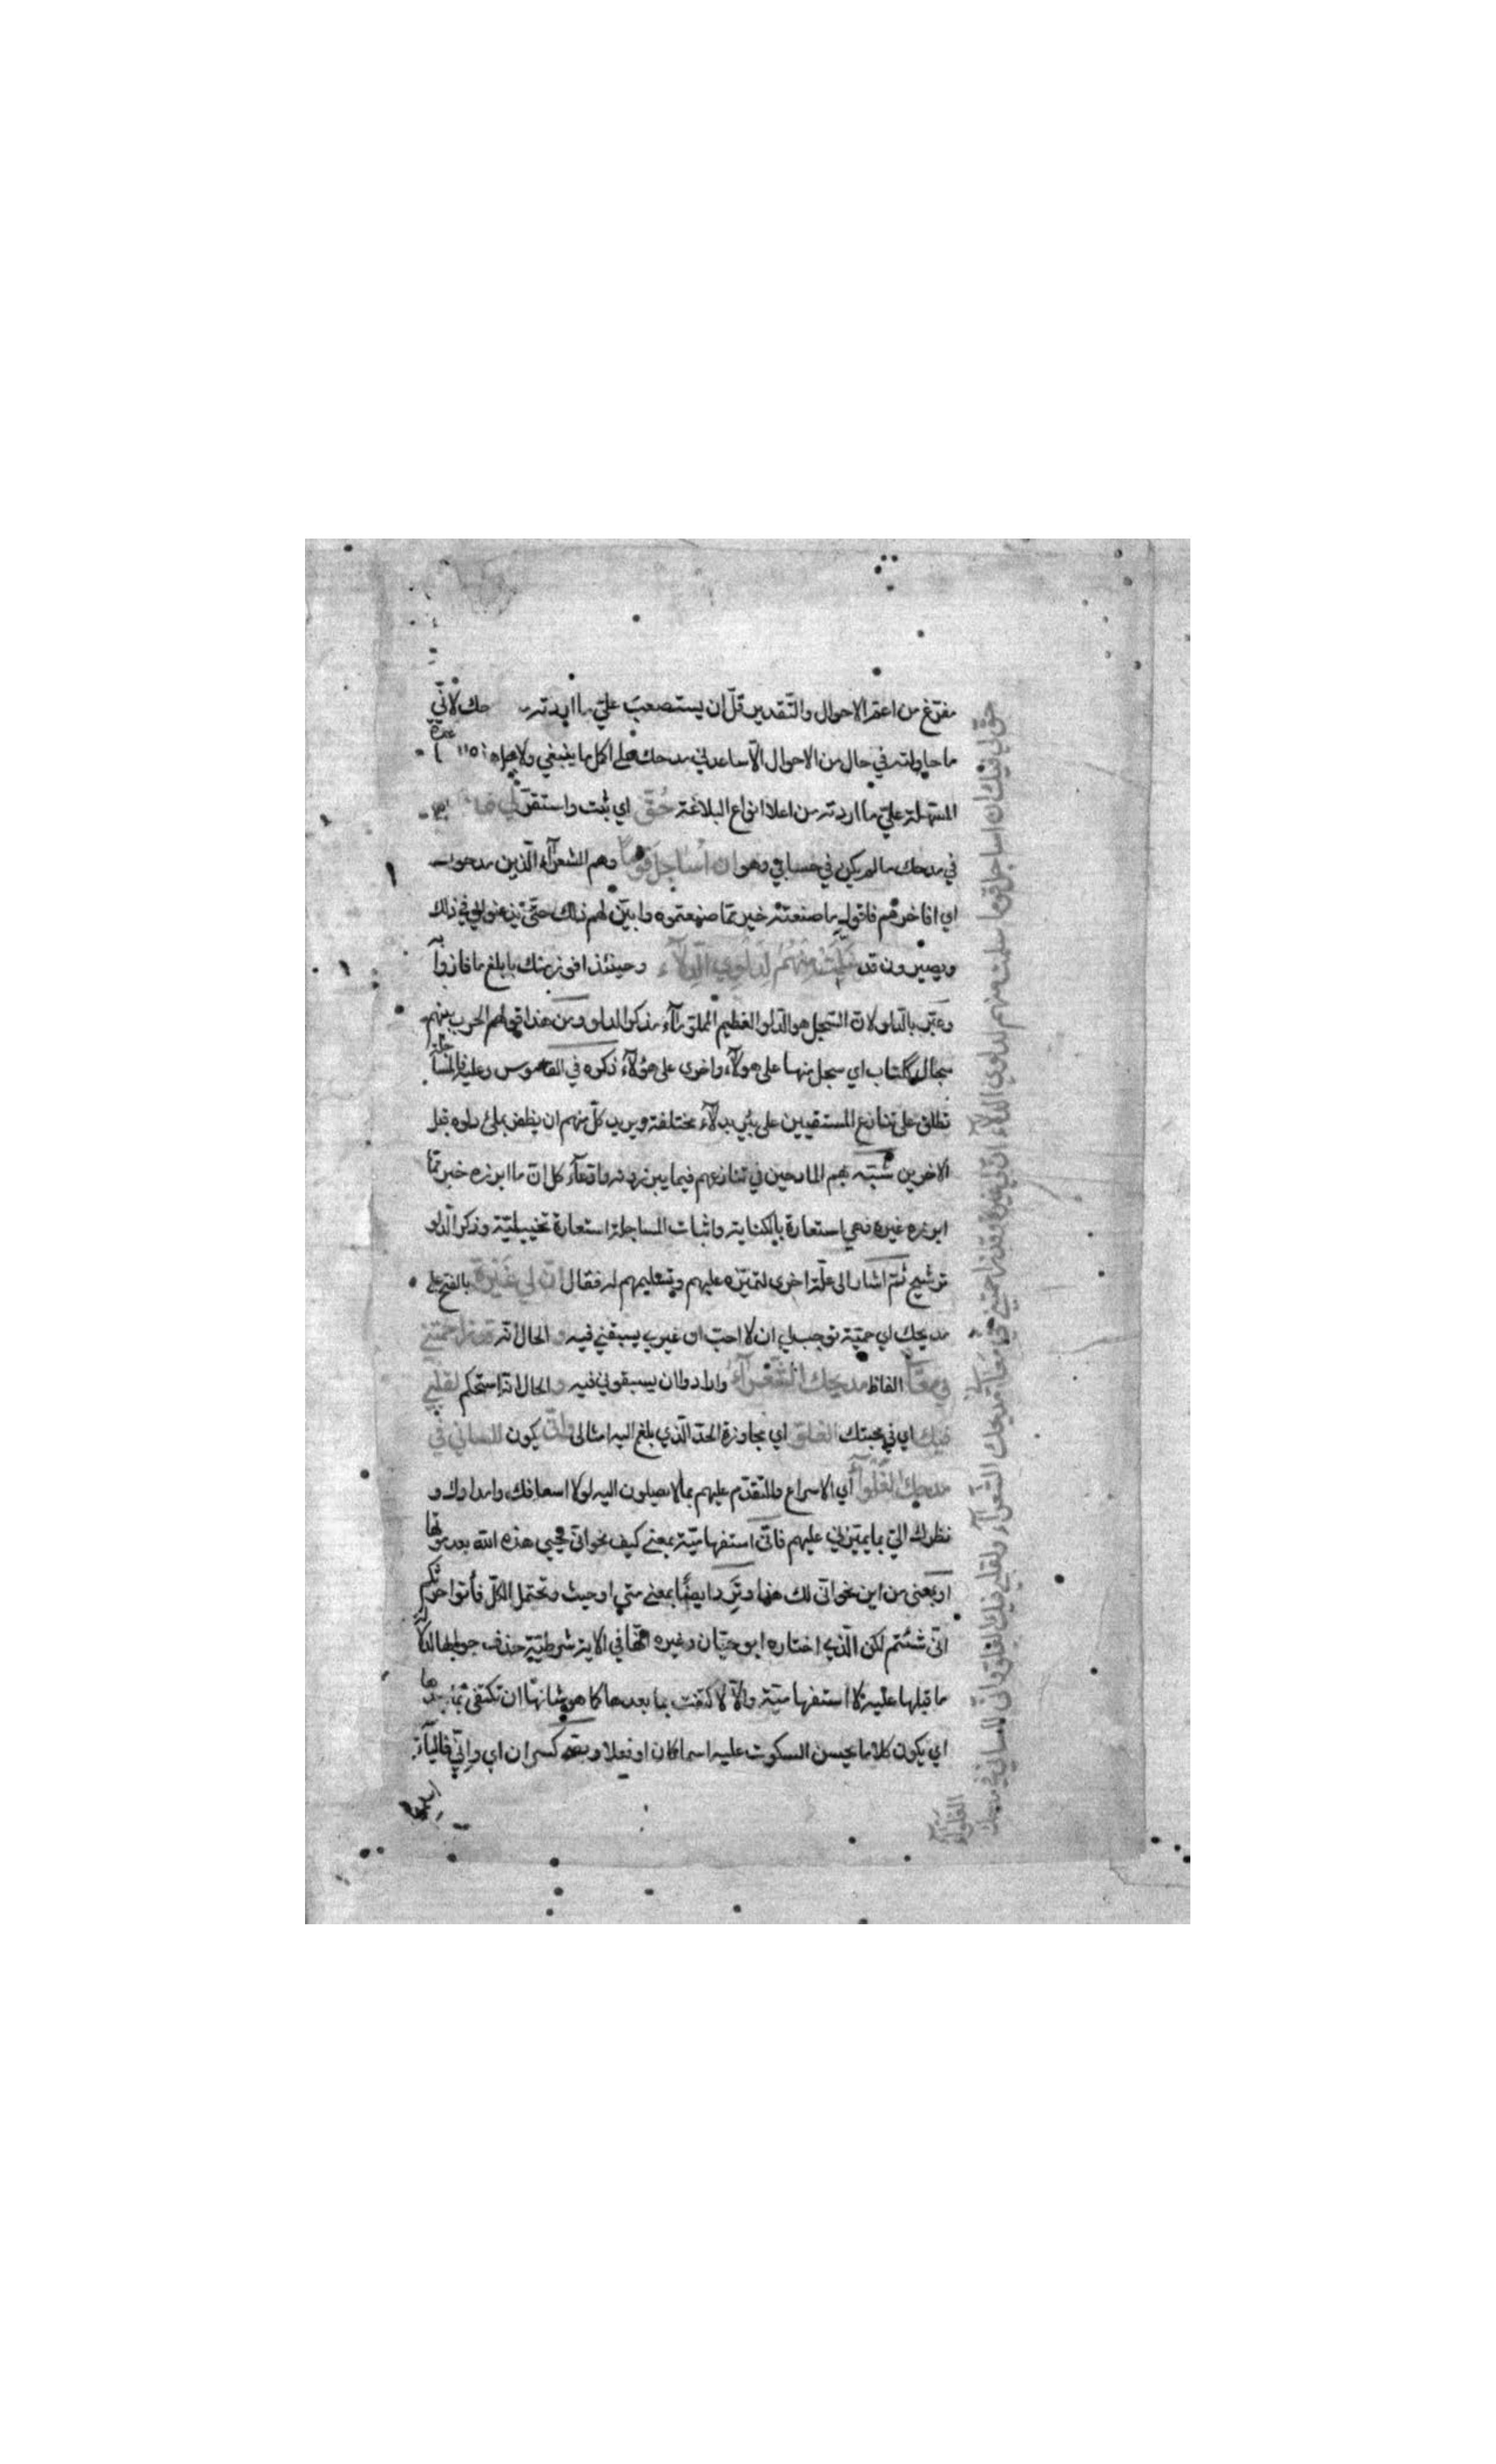 مفرّغ من اعمّ الاحوال والتّقدير قلّ ان يستصعب عليّ ما اردته حك لانّي
ما حاولته في حال من الاحوال الّا ساعدني مدحك على اكمل ما ينبغي ولاجل
المسهلة عليّ ما اردته من اعلا انواع البلاغة حُقّ اي ثبت واستقرّ لي
في مدحك ما لم يكن في حسابي وهو ان اُساجل قوماً وهم الشعرآء الّذين مدحوك
اي افاخرهم فاقول ما صنعته خير ممّا صنعتموه وابيّن لهم ذلك حتّى يذعنوا لي في ذلك
ويصيرون قد سلّمت منهم لدلوي الدّلآء وحينئذ افوز منك بابلغ ما فازوا به
وعبّر بالدّلو لانّ السّجل هو الدّلو العظيم الملئ مآء مذكر الدلو ومن هذا قولهم الحرب بينهم
سجال ككتاب اي سجل منها على هولآء واخرى على هؤلآء ذكره في القاموس وعليه فالمساجلة
تطلق على تنازع المستقيين على بئر بدلآء مختلفة ويريد كلّ منهم ان يظفر بملئ دلوه قبل
الاخرين شبّه بهم المادحين في تنازعهم فيما يبرزونه وادّعآء كل انّ ما ابرزه خير ممّا
ابرزه غيره فهي استعارة بالكناية واثبات المساجلة استعارة تخييليّة وذكر الدّلو
ترشيح ثمّ اشار الى علّة اخرى لتميّزه عليهم وتسليمهم له فقال انّ لي غيرة بالفتح على
مديحك اي حميّة توجب لي ان لا احبّ ان غيري يسبقني فيه والحال انّه قد زاحمتني
في معنا الفاظ مديحك الشّعرآء وارادوا ان يسبقوني فيه والحال انّه استحكم لقلبي
فيك اي في محبتك الغلوّ اي مجاوزة الحدّ الّذي بلغ اليه امثالي وانّى يكون للساني في
مدحك الغُلوآء أي الاسراع والتّقدّم عليهم بما لا يصلون اليه لولا اسعافك وامدادك و
نظرك اليّ بما يميّزني عليهم فانّى استفهاميّة بمعنى كيف نحو انّى يحيي هذه الله بعد موتها
او بمعنى من اين نحو انّى لك هذا وترد ايضًا بمعنى متى او حيث وتحتمل الكلّ فأتوا حرثكم
انّى شئتم لكن الّذي اختاره ابو حيّان وغيره انّها في الاية شرطيّة حذف جوابها لدلالة
ما قبلها عليه لا استفهاميّة والّا لاكتفت بما بعدها كما هو شانها ان تكتفي بما بعدها
اي يكون كلاما يحسن السكوت عليه اسما كان او فعلا و كسر ان اي وإنّي فاليآء
حقّ لي فيك ان اساجل قوما سلّمت منهم لدلوي الدّلآء انّ لي غيرة وقد زاحمتني في معنا مديحك الشّعرآء ولقلبي فيك الغلوّ وانّى للساني في مدحك
الغلوآء